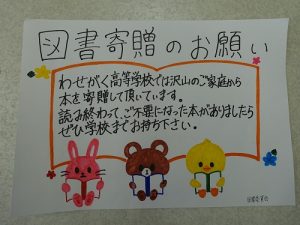 図書寄贈のお願い
わせがく高等学校では沢山のご家庭から
本を寄贈して頂いています。
読み終わって、ご不要になった本がありましたら
ぜひ学校までお持ち下さい。
図書委員会